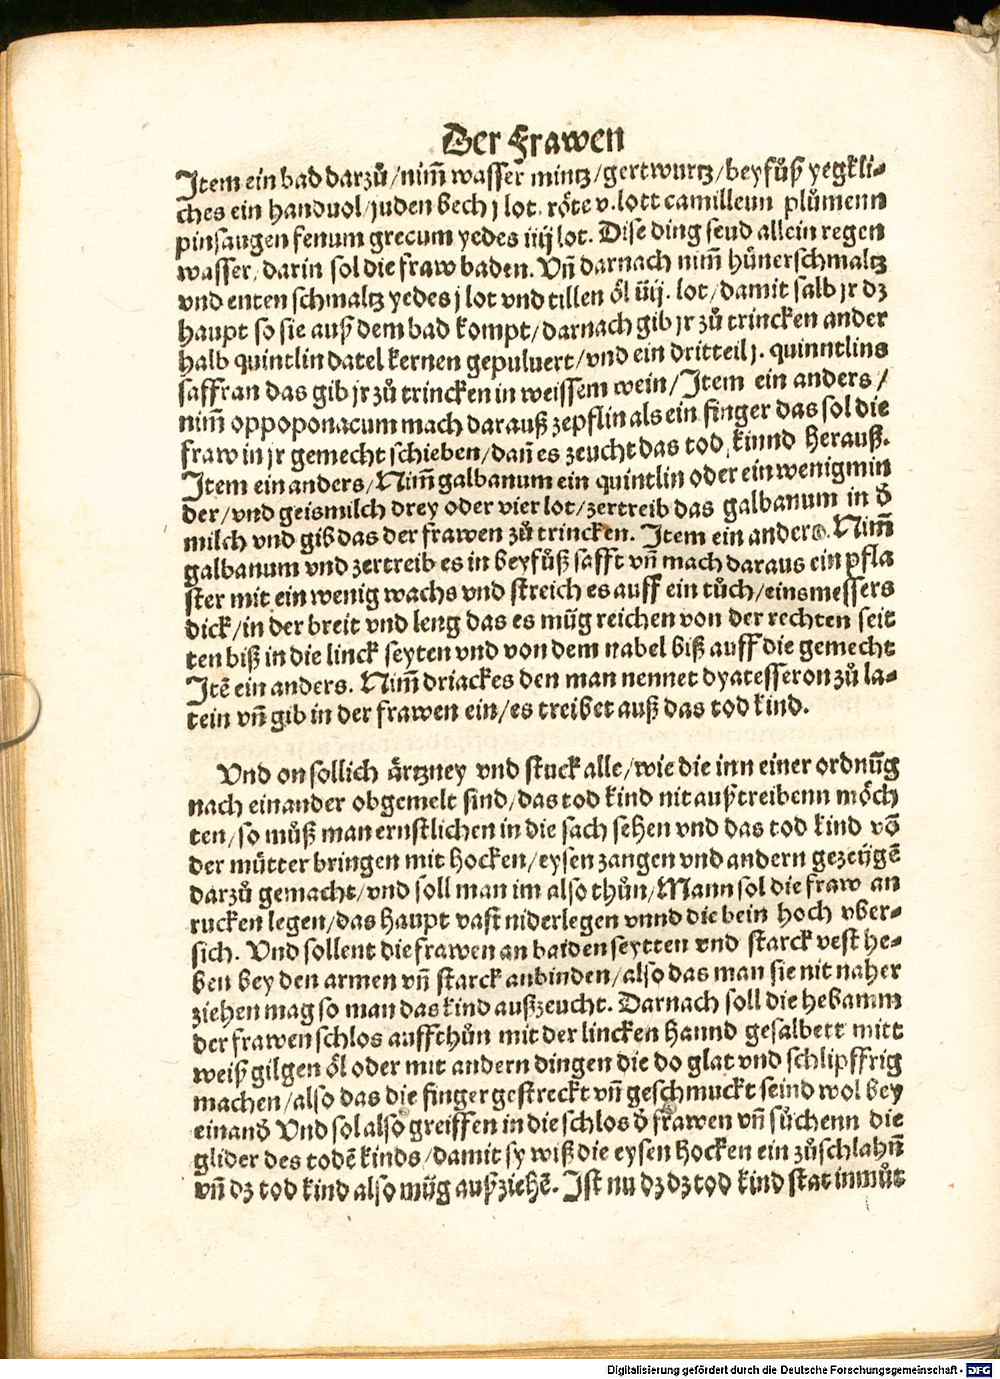 Der Frawen
Item ein bad darzů/nim̄ wasser mintz/gertwurtz/beyfůß yegkli-
ches ein handuol/juden bech j lot. röte v.lott camilleun plůmenn
pinsaugen fenum grecum yedes iiij lot. Dise ding seud allein regen
wasser/darin sol die fraw baden. Vn̄ darnach nim̄ hůnerschmaltz
vnd enten schmaltz yedes j lot vnd tillen öl iiij. lot/damit salb jr dz
haupt so sie auß dem bad kompt/darnach gib jr zů trincken ander
halb quintlin datel kernen gepuluert/vnd ein dritteil j. quinntlins
saffran das gib jr zů trincken in weissem wein/Item ein anders/
nim̄ oppoponacum mach darauß zepflin als ein finger das sol die
fraw in jr gemecht schieben/dan̄ es zeucht das tod kinnd herauß.
Item ein anders/Nim̄ galbanum ein quintlin oder ein wenig min
der/vnd geismilch drey oder vier lot/zertreib das galbanum in d̄
milch vnd gib das der frawen zů trincken. Item ein anders. Nim̄
galbanum vnd zertreib es in beyfůß safft vn̄ mach daraus ein pfla
ster mit ein wenig wachs vnd streich es auff ein tůch/eins messers
dick/in der breit vnd leng das es můg reichen von der rechten seit
ten biß in die linck seyten vnd von dem nabel biß auff die gemecht
Itē ein anders. Nim̄ driackes den man nennet dyatesseron zů la-
tein vn̄ gib in der frawen ein/es treibet auß das tod kind.
Vnd on sollich ärtzney vnd stuck alle/wie die inn einer ordnūg
nach einander obgemelt sind/das tod kind nit außtreibenn möch
ten/so můß man ernstlichen in die sach sehen vnd das tod kind vō
der mütter bringen mit hocken/eysen zangen vnd andern gezeügē
darzů gemacht/vnd soll man im also thůn/Mann sol die fraw an
rucken legen/das haupt vast niderlegen vnnd die bein hoch vber-
sich. Vnd sollent die frawen an baiden seytten vnd starck vest he-
ben bey den armen vn̄ starck anbinden/also das man sie nit naher
ziehen mag so man das kind außzeucht. Darnach soll die hebamm
der frawen schlos auffthůn mit der lincken hannd gesalbett mitt
weiß gilgen öl oder mit andern dingen die do glat vnd schlipffrig
machen/also das die finger gestreckt vn̄ geschmuckt seind wol bey
einand̄ Vnd sol also greiffen in die schlos d̄ frawen vn̄ sůchenn die
glider des todē kinds/damit sy wiß die eysen hocken ein zůschlahn̄
vn̄ dz tod kind also müg außziehē. Ist nu dz dz tod kind stat in můt
Digitalisierung gefördert durch die Deutsche Forschungsgemeinschaft - DFG